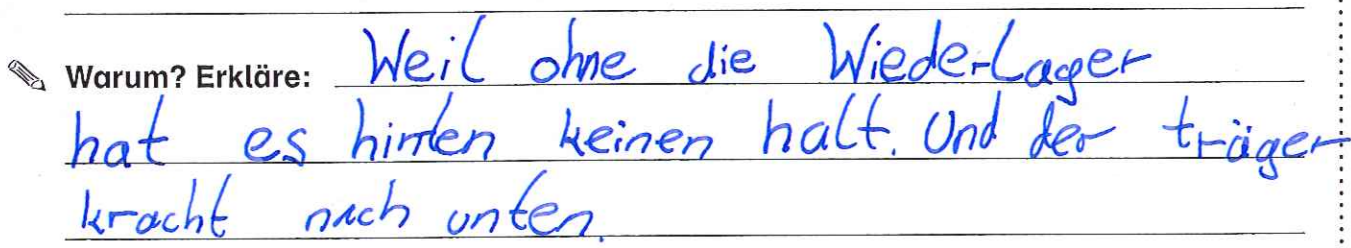 Warum? Erkläre: Weil ohne die Wiederlager
hat es hinten keinen halt. Und der träger
kracht nach unten.